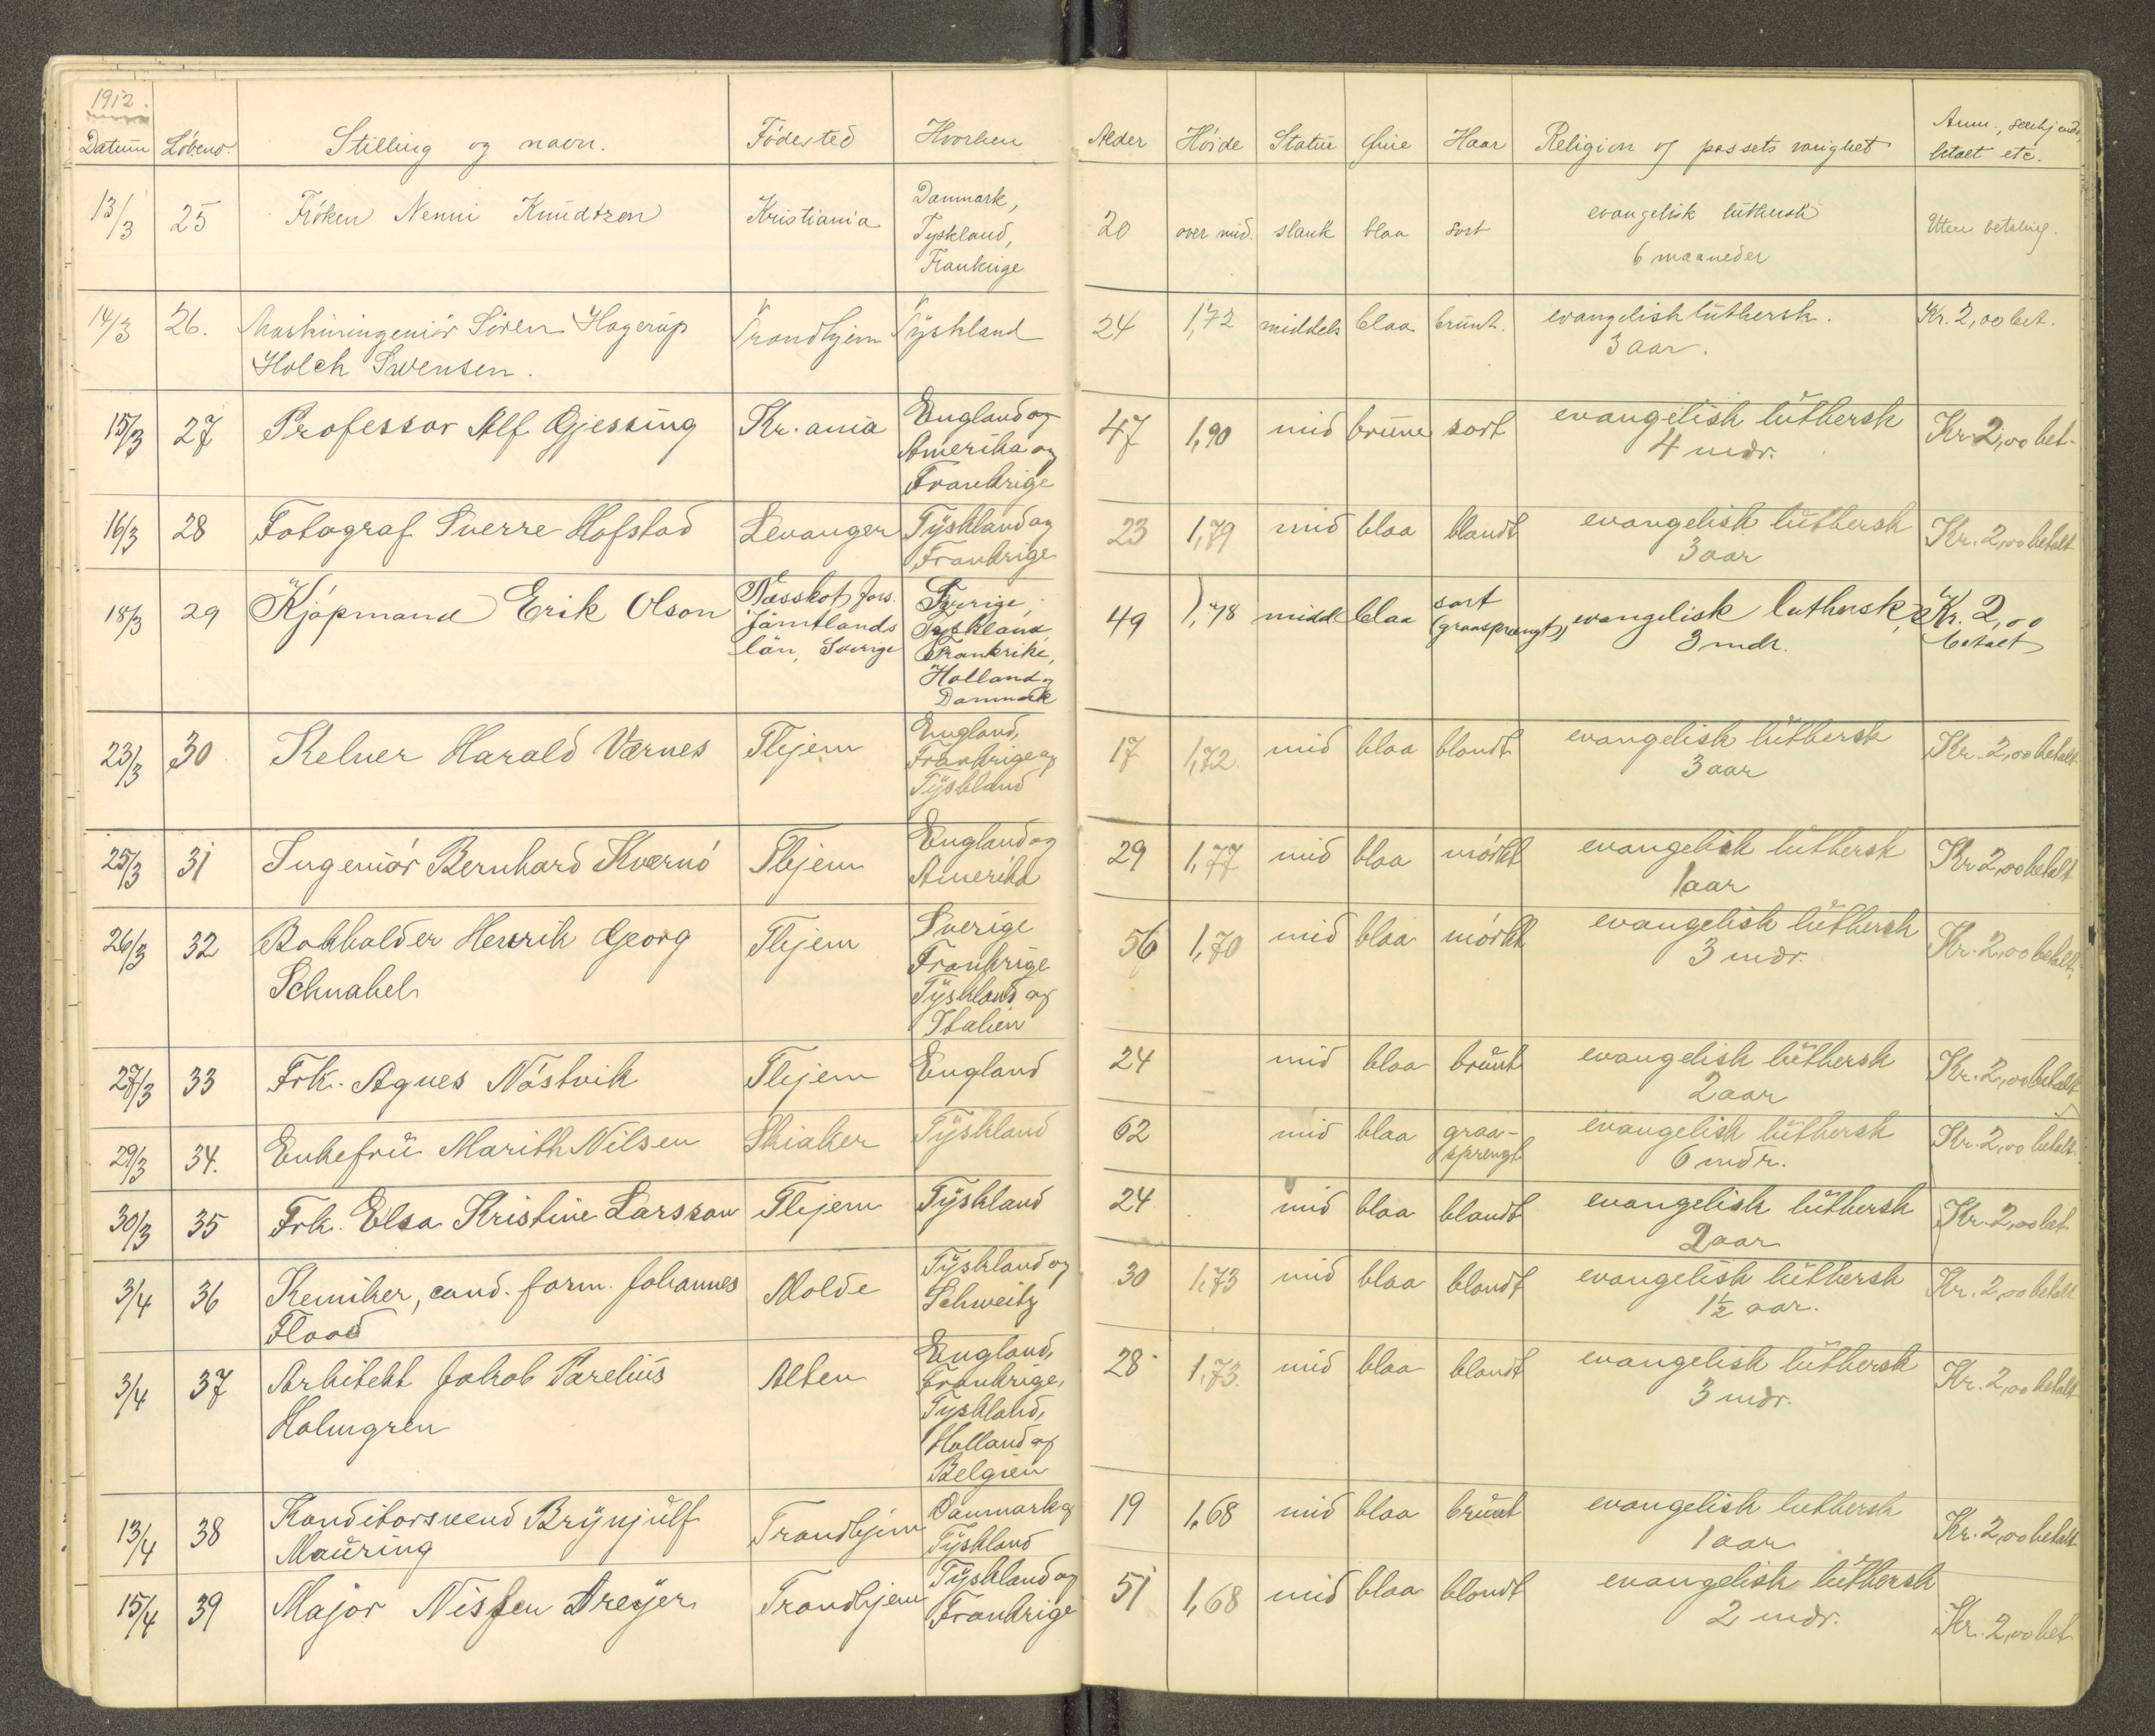 1912.
Datum Löbeno. Stilling og navn. Födested Hvorhen Alder Höide Statur Öine Haar Religion og passets varighet Anm., selvkjendt, betalt etc.
13/3 25 Fröken Nenni Knudtzon Kristiania Danmark, Tyskland, Frankrige 20 over mid. slank blaa sort evangelisk luthersk 6 maaneder Uten betaling.
14/3 26. Maskiningeniör Sören Hagerup Holch Svensen. Trondhjem Tyskland 24 1,72 middels blaa brunt. evangelisk luthersk. 3 aar. Kr. 2,00 bet.
15/3 27 Professor Alf Gjessing Kr.ania England og Amerika og Frankrige 47 1,90 mid brune sort evangelisk luthersk 4 mdr. Kr. 2,00 bet.
16/3 28 Fotograf Sverre Hofstad Levanger Tyskland og Frankrige 23 1,79 mid blaa blondt evangelisk luthersk 3 aar Kr. 2,00 betalt
18/3 29 Kjöpmand Erik Olson Næsskot fors. jämtlands län, Sverige Sverige, Tyskland, Frankrike, Holland og Danmark 49 1,78 midd blaa sort (graasprængt), evangelisk luthersk, 3 mdr. Kr. 2,00 betalt
23/3 30 Kelner Harald Værnes Thjem England, Frankrige og Tyskland 17 1,72. mid blaa blondt evangelisk luthersk 3 aar Kr. 2,00 betalt
25/3 31 Ingeniör Bernhard Kvernö Thjem England og Amerika 29 1,77 mid blaa mörkt evangelisk luthersk 1 aar Kr. 2,00 betalt
26/3 32 Bokholder Henrik Georg Schnabel Thjem Sverige Frankrige Tyskland og Italien 56 1,70 mid blaa mörkt evangelisk luthersk 3 mdr. Kr. 2,00 betalt.
27/3 33 Frk. Agnes Nöstvik Thjem England 24 mid blaa brunt evangelisk luthersk 2 aar Kr. 2,00 betalt
29/3 34. Enkefru Marith Nilsen Skiaker Tyskland 62 mid blaa graa-sprengt evangelisk luthersk 6 mdr. Kr. 2,00 betalt.
30/3 35 Frk. Elsa Kristine Larsson Thjem Tyskland 24 mid blaa blondt evangelisk luthersk 2 aar Kr. 2,00 bet.
3/4 36 Kemiker, cand. farm. Johannes Flood Molde Tyskland og Schweitz 30 1,73 mid blaa blondt evangelisk luthersk 1½ aar. Kr. 2,00 betalt
3/4 37 Arkitekt Jakob Parelius Holmgren Alten England, Frankrige, Tyskland, Holland og Belgien 28 1,73. mid blaa blondt evangelisk luthersk 3 mdr. Kr. 2,00 betalt
13/4 38 Konditorsvend Brynjulf Mauring Trondhjem Danmark og Tyskland 19 1,68 mid blaa brunt evangelisk luthersk 1 aar Kr. 2,00 betalt
15/4 39 Major Nissen Dreyer Trondhjem Tyskland og Frankrige 51 1,68 mid blaa blondt evangelisk luthersk 2 mdr. Kr. 2,00 bet.